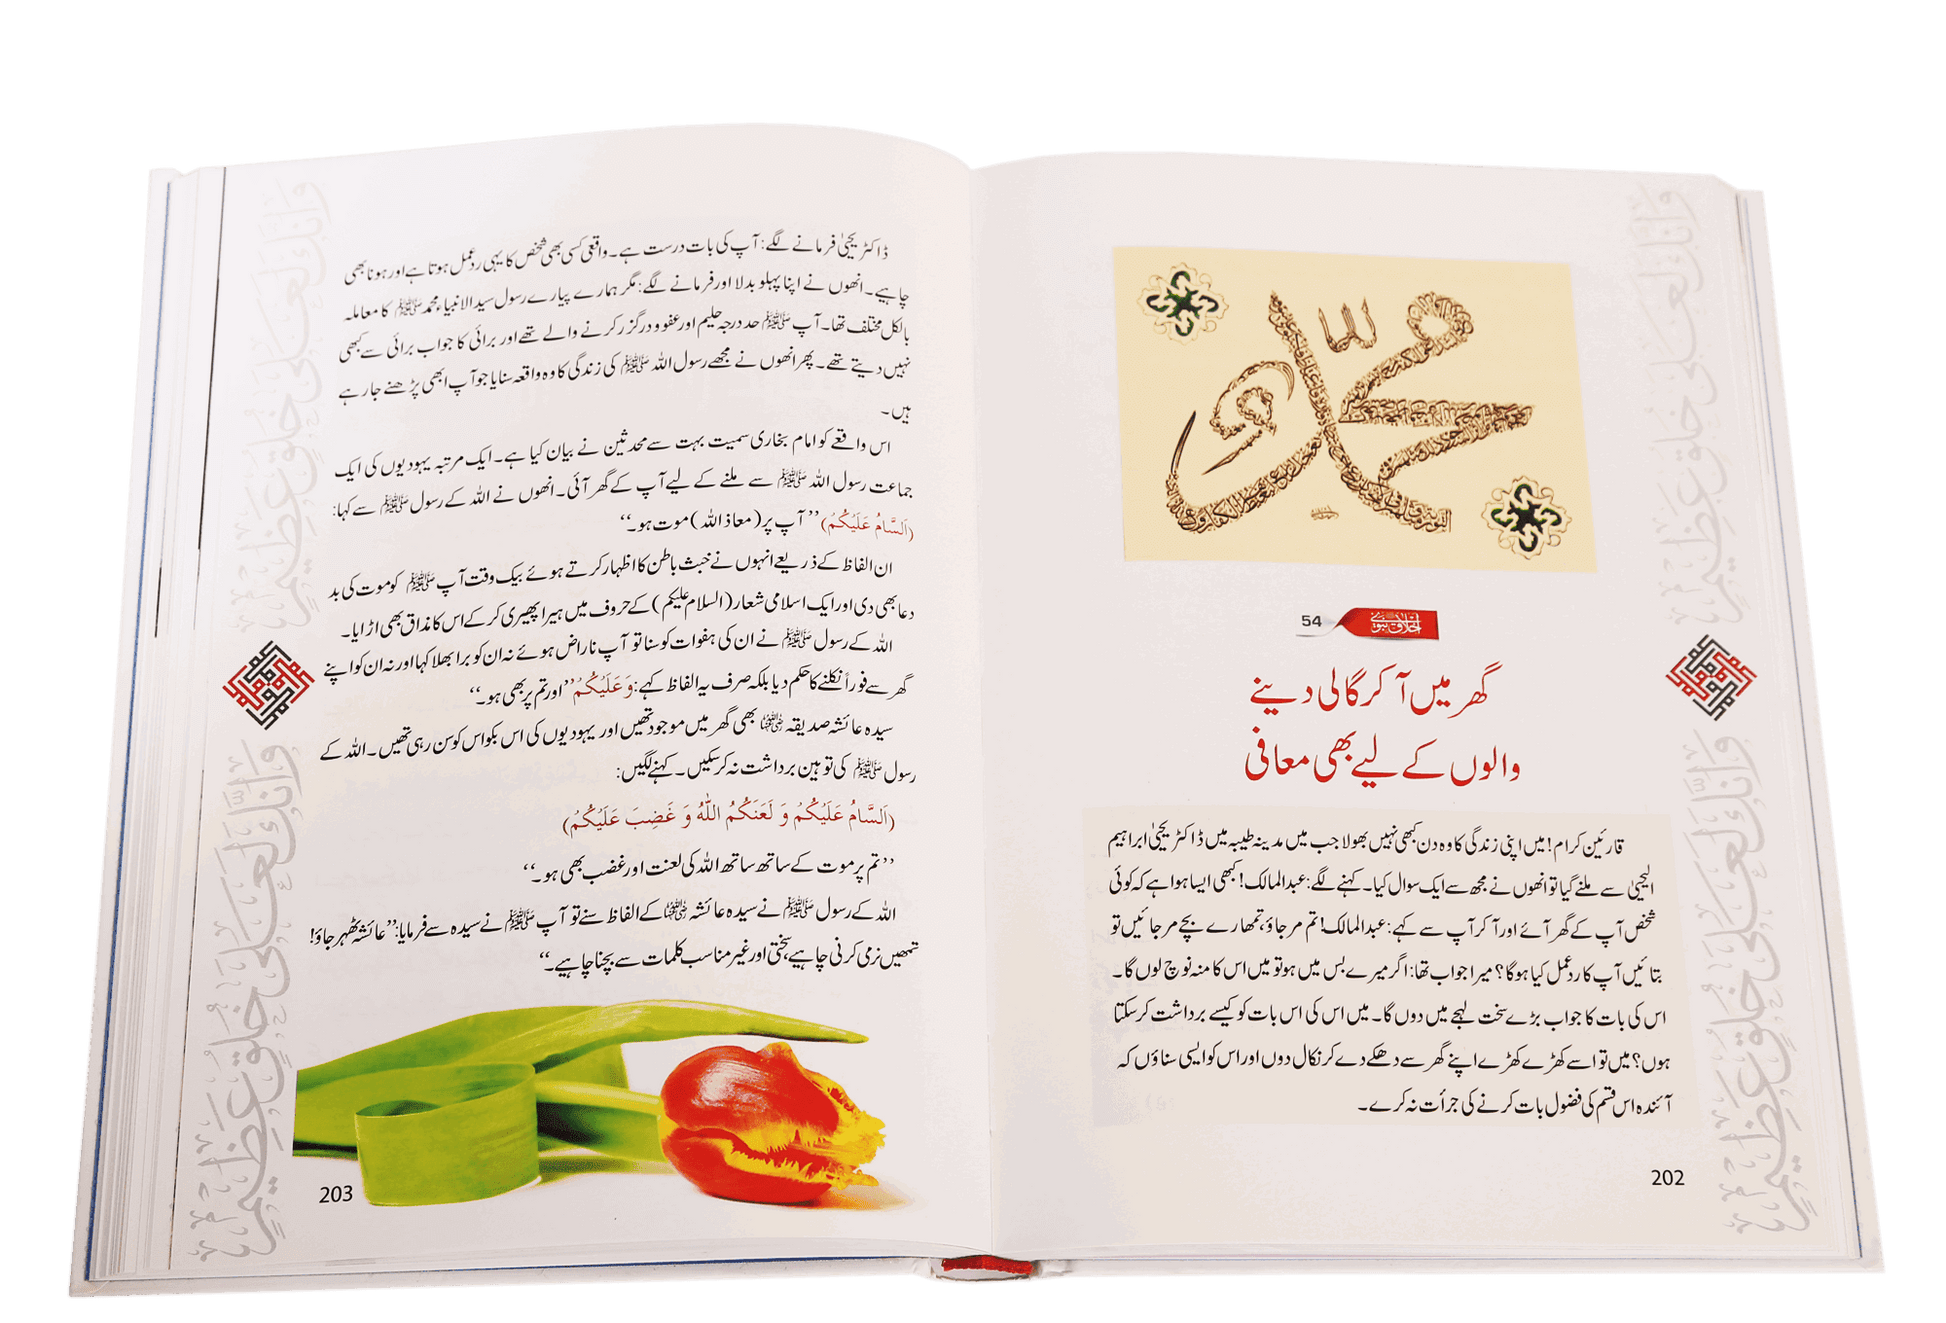 54
اخلاق نبوی
گھر میں آ کر گالی دینے
والوں کے لیے بھی معافی
قارئین کرام! میں اپنی زندگی کا وہ دن کبھی نہیں بھولا جب میں مدینہ طیبہ میں ڈاکٹر یحییٰ ابراہیم
الیحییٰ سے ملنے گیا تو انھوں نے مجھ سے ایک سوال کیا۔ کہنے لگے: عبدالمالک! کبھی ایسا ہوا ہے کہ کوئی
شخص آپ کے گھر آئے اور آ کر آپ سے کہے: عبدالمالک! تم مر جاؤ، تمھارے بچے مر جائیں تو
بتائیں آپ کا ردعمل کیا ہوگا؟ میرا جواب تھا: اگر میرے بس میں ہو تو میں اس کا منہ نوچ لوں گا۔
اس کی بات کا جواب بڑے سخت لہجے میں دوں گا۔ میں اس کی اس بات کو کیسے برداشت کر سکتا
ہوں؟ میں تو اسے کھڑے کھڑے اپنے گھر سے دھکے دے کر نکال دوں اور اس کو ایسی سناؤں کہ
آئندہ اس قسم کی فضول بات کرنے کی جرأت نہ کرے۔
202
وَإِنَّكَ لَعَلَىٰ خُلُقٍ عَظِيمٍ
وَإِنَّكَ لَعَلَىٰ خُلُقٍ عَظِيمٍ
ڈاکٹر یحییٰ فرمانے لگے: آپ کی بات درست ہے۔ واقعی کسی بھی شخص کا یہی ردعمل ہوتا ہے اور ہونا بھی
چاہیے۔ انھوں نے اپنا پہلو بدلا اور فرمانے لگے: مگر ہمارے پیارے رسول سید الانبیاء محمد ﷺ کا معاملہ
بالکل مختلف تھا۔ آپ ﷺ حد درجہ حلیم اور عفو و درگزر کرنے والے تھے اور برائی کا جواب برائی سے کبھی
نہیں دیتے تھے۔ پھر انھوں نے مجھے رسول اللہ ﷺ کی زندگی کا وہ واقعہ سنایا جو آپ ابھی پڑھنے جا رہے
ہیں۔
اس واقعے کو امام بخاری سمیت بہت سے محدثین نے بیان کیا ہے۔ ایک مرتبہ یہودیوں کی ایک
جماعت رسول اللہ ﷺ سے ملنے کے لیے آپ کے گھر آئی۔ انھوں نے اللہ کے رسول ﷺ سے کہا:
(اَلسَّامُ عَلَيْكُمْ) ’’آپ پر (معاذ اللہ) موت ہو۔‘‘
ان الفاظ کے ذریعے انہوں نے خبث باطن کا اظہار کرتے ہوئے بیک وقت آپ ﷺ کو موت کی بد
دعا بھی دی اور ایک اسلامی شعار (السلام علیکم) کے حروف میں ہیرا پھیری کر کے اس کا مذاق بھی اڑایا۔
اللہ کے رسول ﷺ نے ان کی ہفوات کو سنا تو آپ ناراض ہوئے نہ ان کو برا بھلا کہا اور نہ ان کو اپنے
گھر سے فوراً نکلنے کا حکم دیا بلکہ صرف یہ الفاظ کہے: وَعَلَيْكُمْ ’’اور تم پر بھی ہو۔‘‘
سیدہ عائشہ صدیقہ رضی اللہ عنہا بھی گھر میں موجود تھیں اور یہودیوں کی اس بکواس کو سن رہی تھیں۔ اللہ کے
رسول ﷺ کی توہین برداشت نہ کر سکیں۔ کہنے لگیں:
(اَلسَّامُ عَلَيْكُمْ وَ لَعَنَكُمُ اللّٰهُ وَ غَضِبَ عَلَيْكُمْ)
’’تم پر موت کے ساتھ ساتھ اللہ کی لعنت اور غضب بھی ہو۔‘‘
اللہ کے رسول ﷺ نے سیدہ عائشہ رضی اللہ عنہا کے الفاظ سنے تو آپ ﷺ نے سیدہ سے فرمایا: ’’عائشہ ٹھہر جاؤ!
تمھیں نرمی کرنی چاہیے، سختی اور غیر مناسب کلمات سے بچنا چاہیے۔‘‘
203
وَإِنَّكَ لَعَلَىٰ خُلُقٍ عَظِيمٍ
وَإِنَّكَ لَعَلَىٰ خُلُقٍ عَظِيمٍ